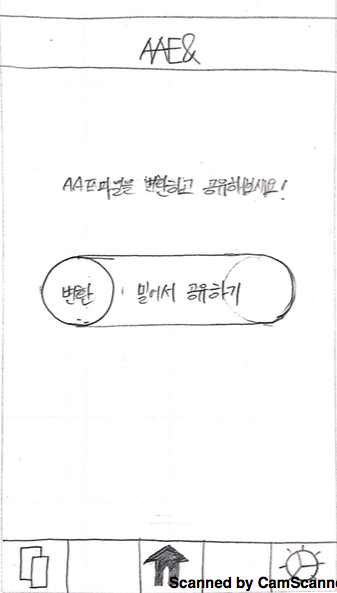 AAE&
AAE파일을 변환하고 공유해보세요!
변환
밀어서 공유하기
Scanned by CamScanne